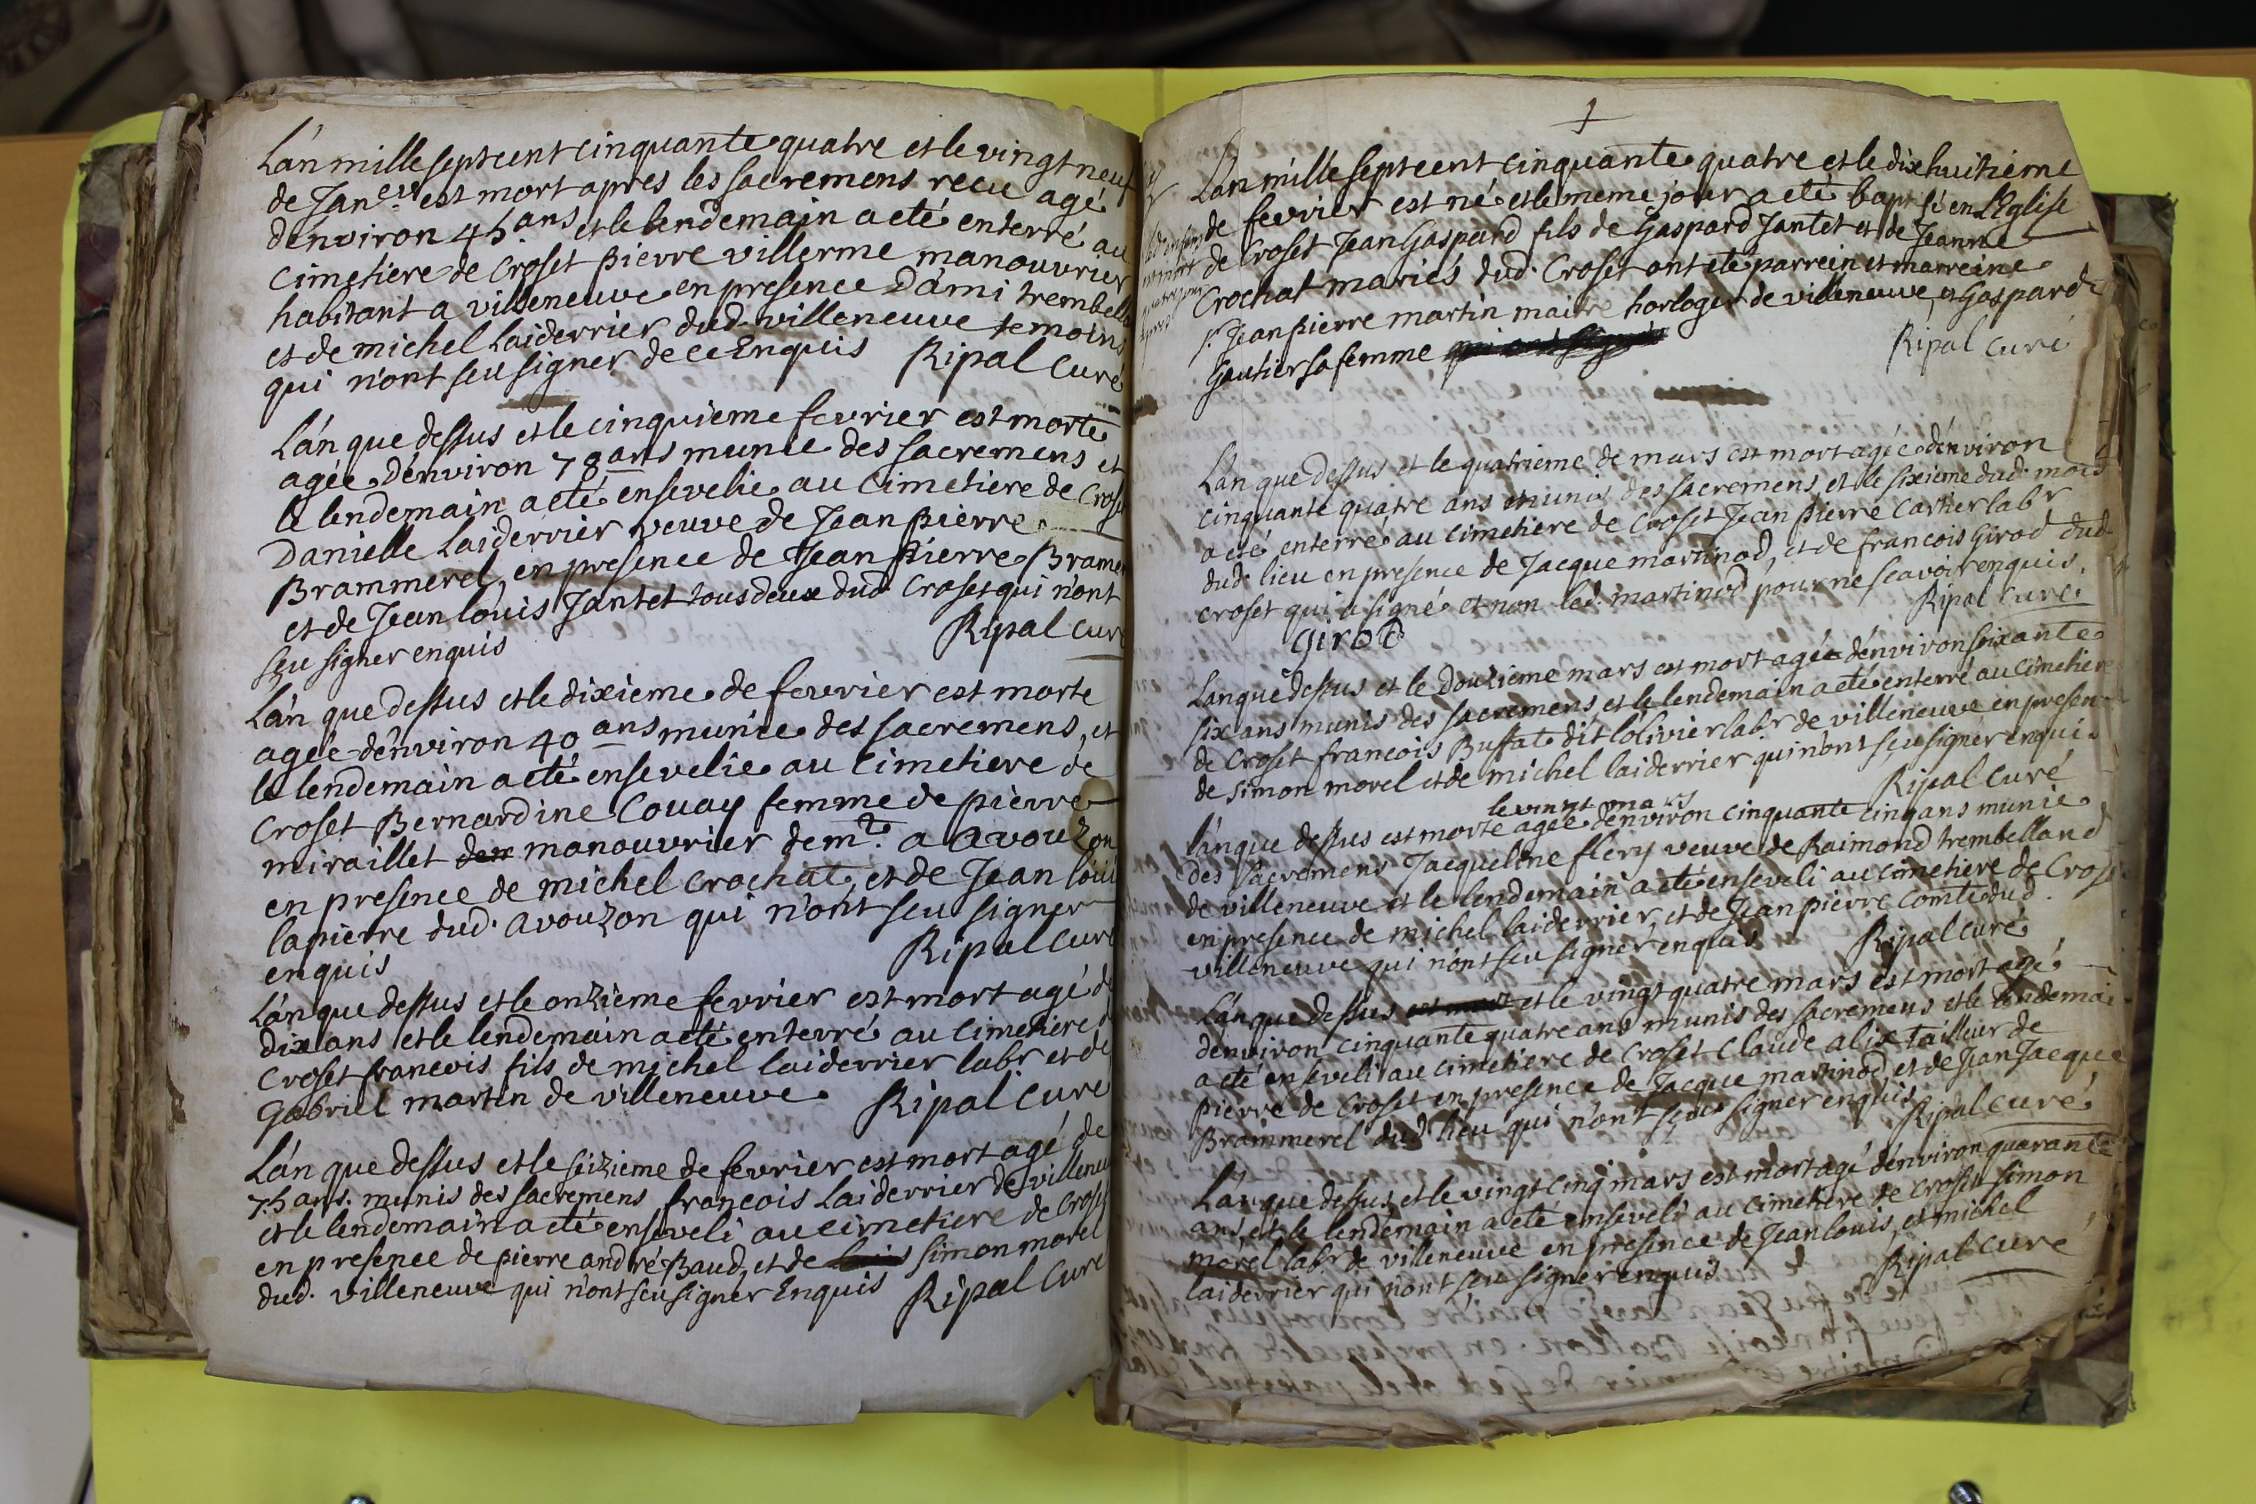 L'an mille sept cent cinquante quatre et le vingt neuf
de Janer est mort apres les sacremens recu agé
d'environ 45 ans et le lendemain a eté enterré au
cimetiere de Croset pierre villerme manouvrier
habitant a villeneuve en presence D'ami trembella
et de michel Laiderrier dud. villeneuve temoins
qui n'ont seu signer de ce Enquis Ripal Curé
L'an que dessus et le cinquieme fevrier est morte
agée d'environ 78 ans munie des sacremens et
le lendemain a eté ensevelie au Cimetiere de Croset
Danielle Laiderrier veuve de Jean Pierre
Brammerel, en presence de Jean Pierre Bramer
et de Jean louis Jantet tous deux dud Croset qui n'ont
seu signer enquis Ripal curé
L'an que dessus et le dixieme de fevrier est morte
agée d'environ 40 ans munie des sacremens, et
le lendemain a eté ensevelie au Cimetiere de
Croset Bernardine Couay femme de pierre
miraillet manouvrier demt. a avouzon
en presence de michel Crochat, et de Jean loui
lapierre dud. avouzon qui n'ont seu signer
enquis Ripal Curé
L'an que dessus et le onzieme fevrier est mort agé de
dix ans et le lendemain a eté enterré au Cimetiere d
Croset francois fils de michel laiderrier labr et de
Gabriel martin de villeneuve Ripal Curé
L'an que dessus et le seizieme de fevrier est mort agé de
75 ans. munis des sacremens francois Laiderrier de villeneu
et le lendemain a eté enseveli au cimetiere de Croset
en presence de pierre andré Baud, et de simon morel
dud. villeneuve qui n'ont seu signer Enquis Ripal Curé
1
L'an mille sept cent cinquante quatre et le dix huitieme
de fevrier est né et le meme jour a eté baptisé en L'Eglise
de Croset Jean Gaspard fils de Gaspard Jantet et de Jeanne
Crochat mariés dud. Croset ont eté parrein et marreine
sr Jean Pierre martin maitre horloger de villeneuve, et Gasparde
Gautier sa femme
Ripal Curé
L'an que dessus et le quatrieme de mars est mort agée d'environ
cinquante quatre ans munis des sacremens, et le sixieme dud. mois
a eté enterré au cimetiere de Croset Jean pierre Cartier labr
dud. lieu en presence de Jacque martinod, et de francois Girod dud.
croset qui a signé et non led. martinod pour ne scavoir enquis.
Girod Ripal Curé
L'an que dessus et le Douzieme mars est mort agée d'environ soixante
six ans munis des sacremens et le lendemain a eté enterré au cimetiere
de Croset francois Buffat dit l'olivier labr de villeneuve en presen
de simon morel et de michel laiderrier qui n'ont seu signer enquis
Ripal Curé
le vingt mars
L'an que dessus est morte agée d'environ cinquante cinq ans munie
des sacremens Jacqueline flery veuve de Raimond trembelland
de villeneuve et le lendemain a eté enseveli au cimetiere de Cros
en presence de michel laiderrier, et de Jean pierre Comte dud.
villeneuve qui n'ont seu signer enquis Ripal Curé
L'an que dessus et le vingt quatre mars est mort agé
d'environ cinquante quatre ans munis des sacremens et le lendemai
a eté enseveli au cimetiere de Croset Claude alix tailleur de
pierre de Croset en presence de Jacque martinod et de Jean Jacque
Brammerel dud. lieu qui n'ont seu signer enquis
Ripal Curé
L'an que dessus, et le vingt cinq mars est mort agé d'environ quarante
ans, et le lendemain a eté enseveli au cimetiere de Croset simon
morel labr de villeneuve en presence de Jean louis, et michel
laiderrier qui n'ont seu signer enquis Ripal Curé